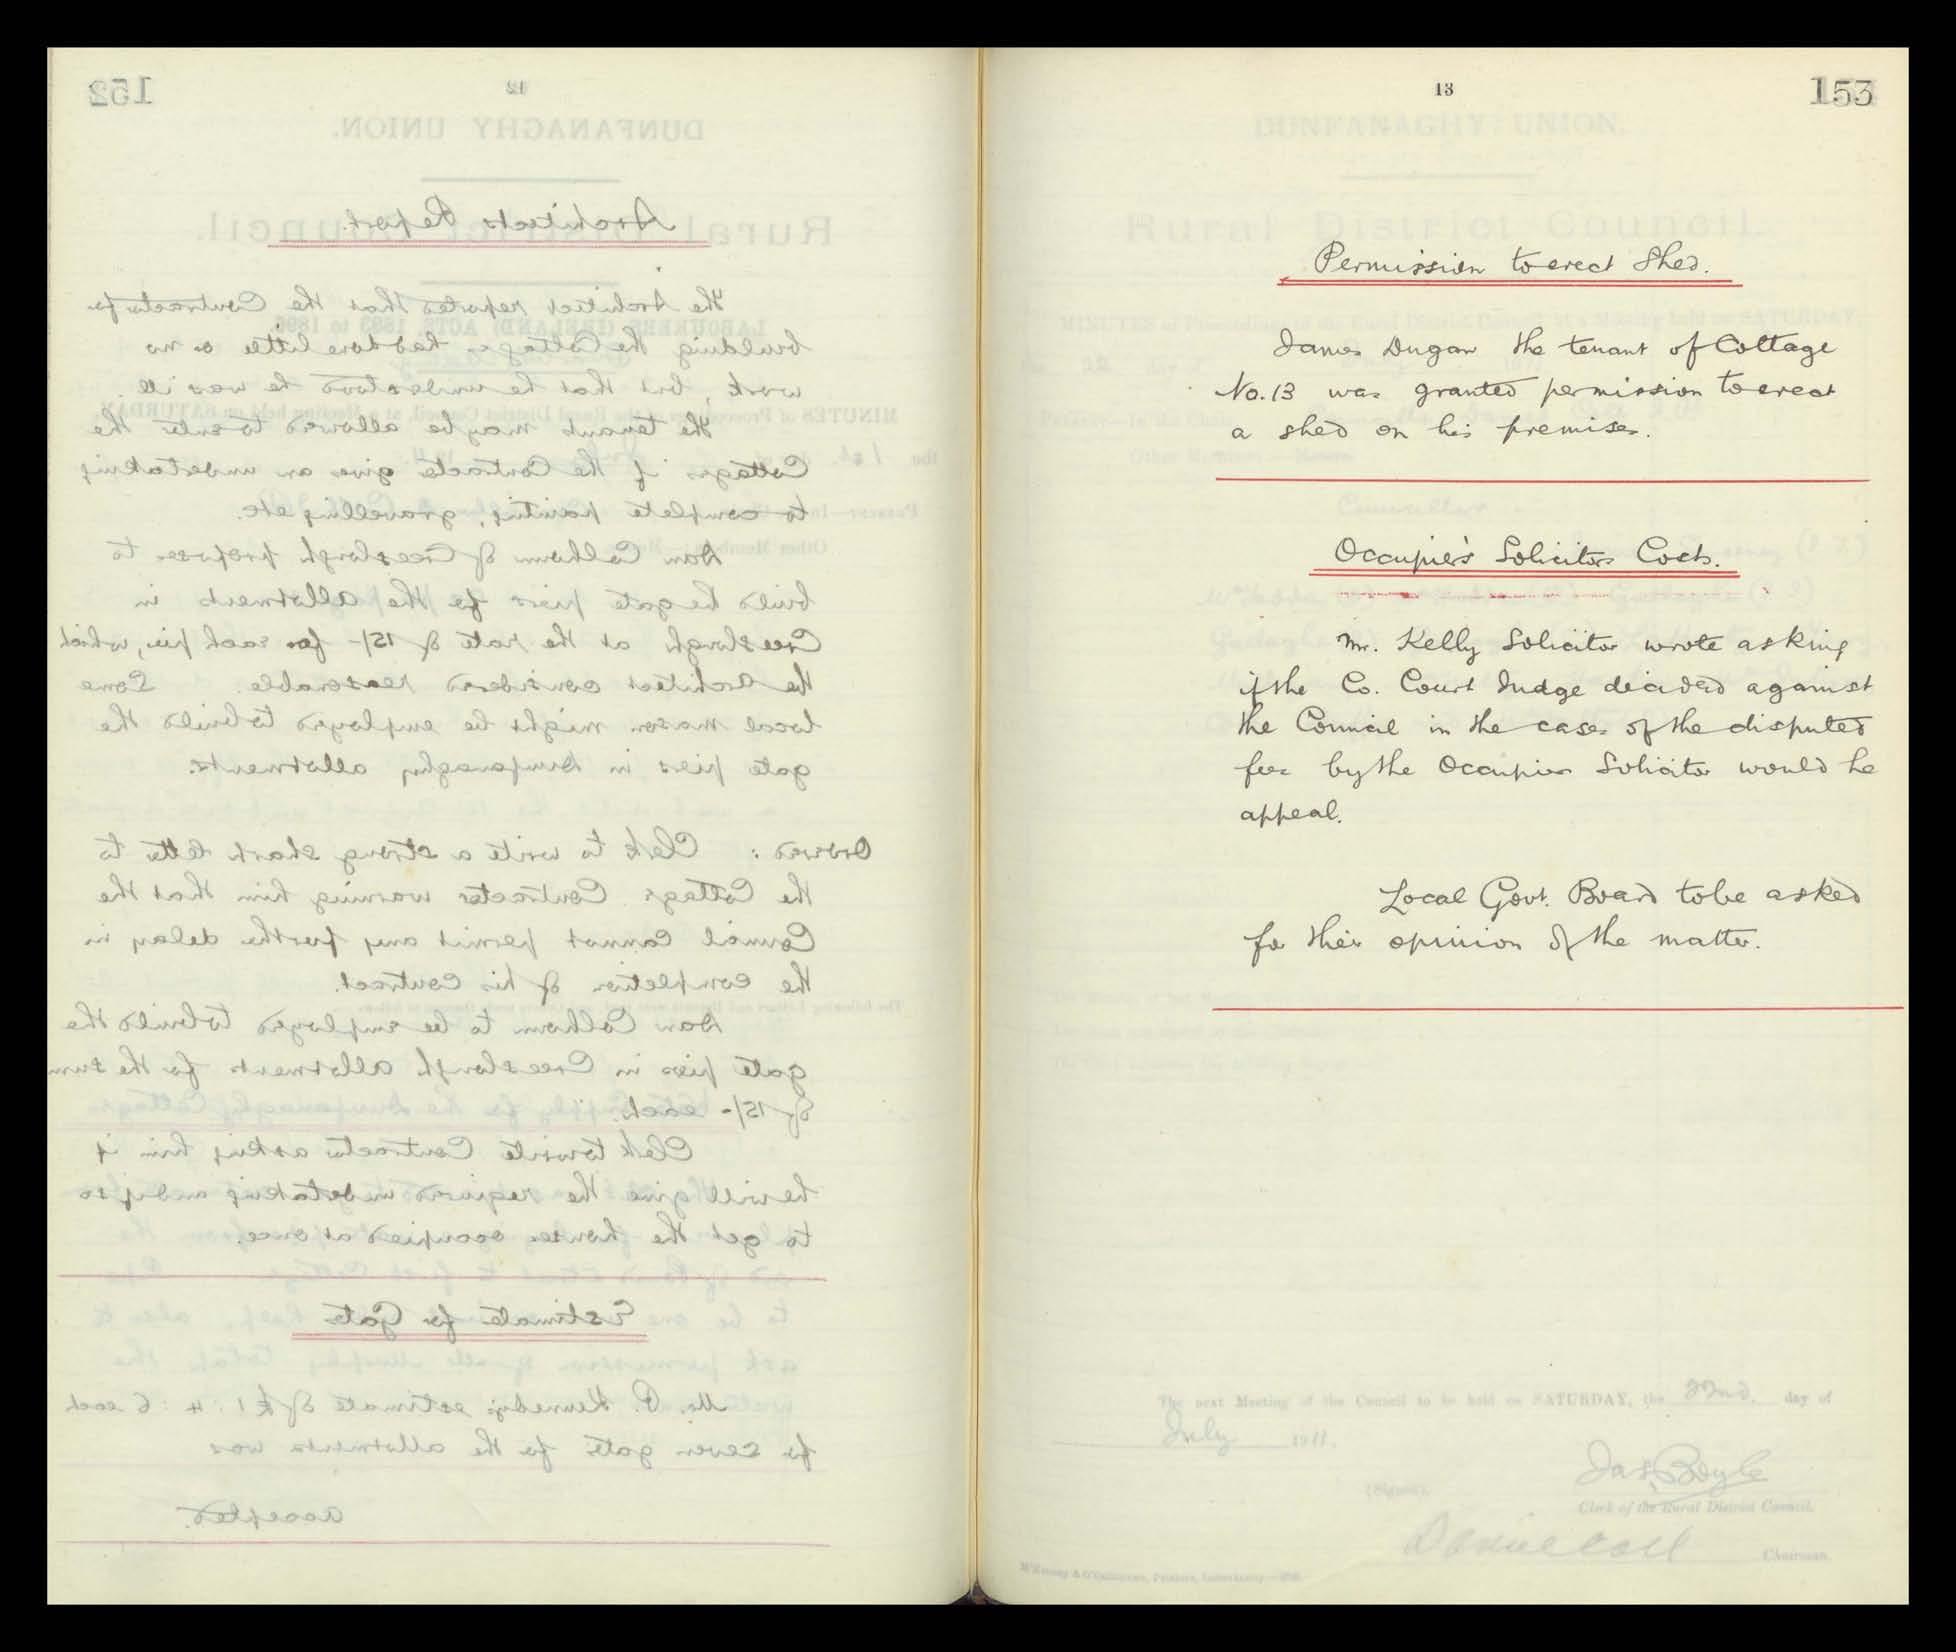 152
12
DUNFANAGHY UNION.
Rural District Council.
Architects Report.
The Architect reports that the Contractor for
building the Cottages had done little or no
work, but that he understood he was ill.
The tenants may be allowed to enter the
Cottages if the Contractor give an undertaking
to complete painting, gravelling etc.
Dan Colhoun of Creeslough proposes to
build the gate piers for the allotments in
Creeslough at the rate of 15/- for each pier, which
the Architect considers reasonable. Some
local mason might be employed to build the
gate piers in Dunfanaghy allotments.
Ordered: Clerk to write a strong sharp letter to
the Cottage Contractor warning him that the
Council cannot permit any further delay in
the completion of his contract.
Dan Colhoun to be employed to build the
gate piers in Creeslough allotments for the sum
of 15/- each.
Clerk to write Contractor asking him if
he will give the required undertaking and if so
to get the houses occupied at once.
Estimate for Gate
Mr. P. Kennedy's estimate of £1:4:6 each
for seven gates for the allotments was
accepted.
13
153
DUNFANAGHY UNION.
Rural District Council.
Permission to erect Shed.
James Dugan the tenant of Cottage
No. 13 was granted permission to erect
a shed on his premises.
Occupier's Solicitors Costs.
Mr. Kelly Solicitor wrote asking
if the Co. Court Judge decided against
the Council in the case of the disputed
fees by the Occupier Solicitor would he
appeal.
Local Govt. Board to be asked
for their opinion of the matter.
The next Meeting of the Council to be held on SATURDAY, the 22nd. day of
July 1911.
(Signed),
Jas. Boyle
Clerk of the Rural District Council.
Daniel Coll
Chairman.